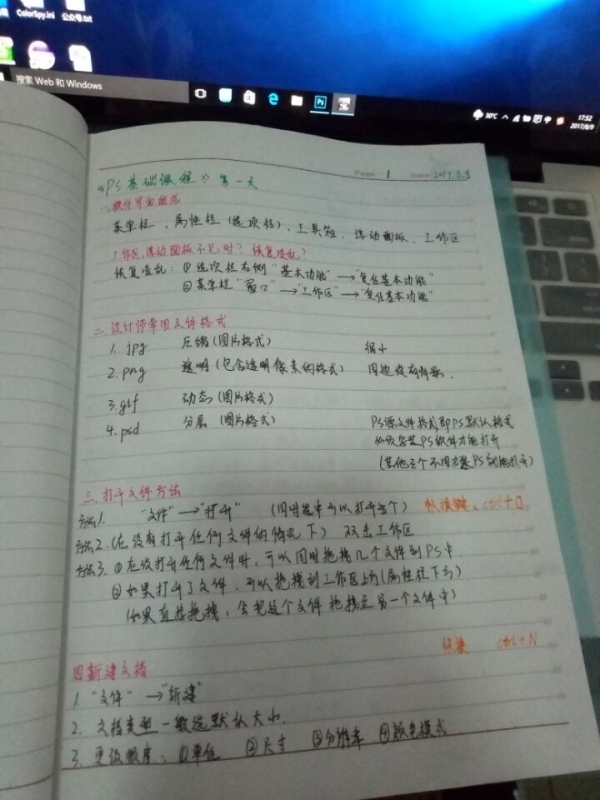 ColorSpy.ini 公众号.txt
搜索 Web 和 Windows
30℃ 17:52
2017/8/9
Page: 1 Date: 2017.8.8
《PS基础课程》第一天
一、软件界面组成
菜单栏、属性栏(选项栏)、工具箱、浮动面板、工作区
工作区、浮动面板不见时?恢复凌乱?
恢复凌乱:①选项栏右侧“基本功能”→“复位基本功能”
②菜单栏“窗口”→“工作区”→“复位基本功能”
二、设计师常用文件格式
1. jpg 压缩(图片格式) 很小
2. png 透明(包含透明像素的格式) 周边没有背景.
3. gif 动态(图片格式)
4. psd 分层(图片格式) PS源文件格式即PS默认格式
必须安装PS软件才能打开
(其他三个不用安装PS就能打开)
三、打开文件方法
方法1. “文件”→“打开” (同时选中可以打开多个) 快捷键 ctrl+O
方法2.(在没有打开任何文件的情况下) 双击工作区
方法3.①在没打开任何文件时,可以同时拖拽几个文件到PS中
②如果打开了文件,可以拖拽到工作区上方(属性栏下方)
(如果直接拖拽,会把这个文件拖拽至另一个文件中)
快捷 ctrl+N
四新建文档
1. “文件”→“新建”
2. 文档类型一般选默认大小.
3. 更改顺序:①单位 ②尺寸 ③分辨率 ④颜色模式